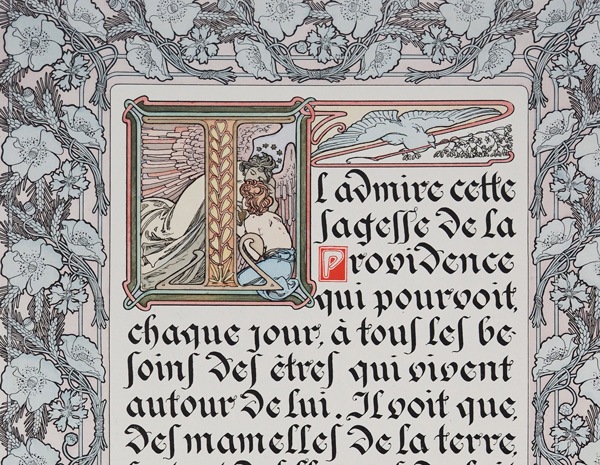 Il admire cette
sagesse de la
Providence
qui pourvoit,
chaque jour, à tous les be-
soins des êtres qui vivent
autour de lui. Il voit que,
des mamelles de la terre,